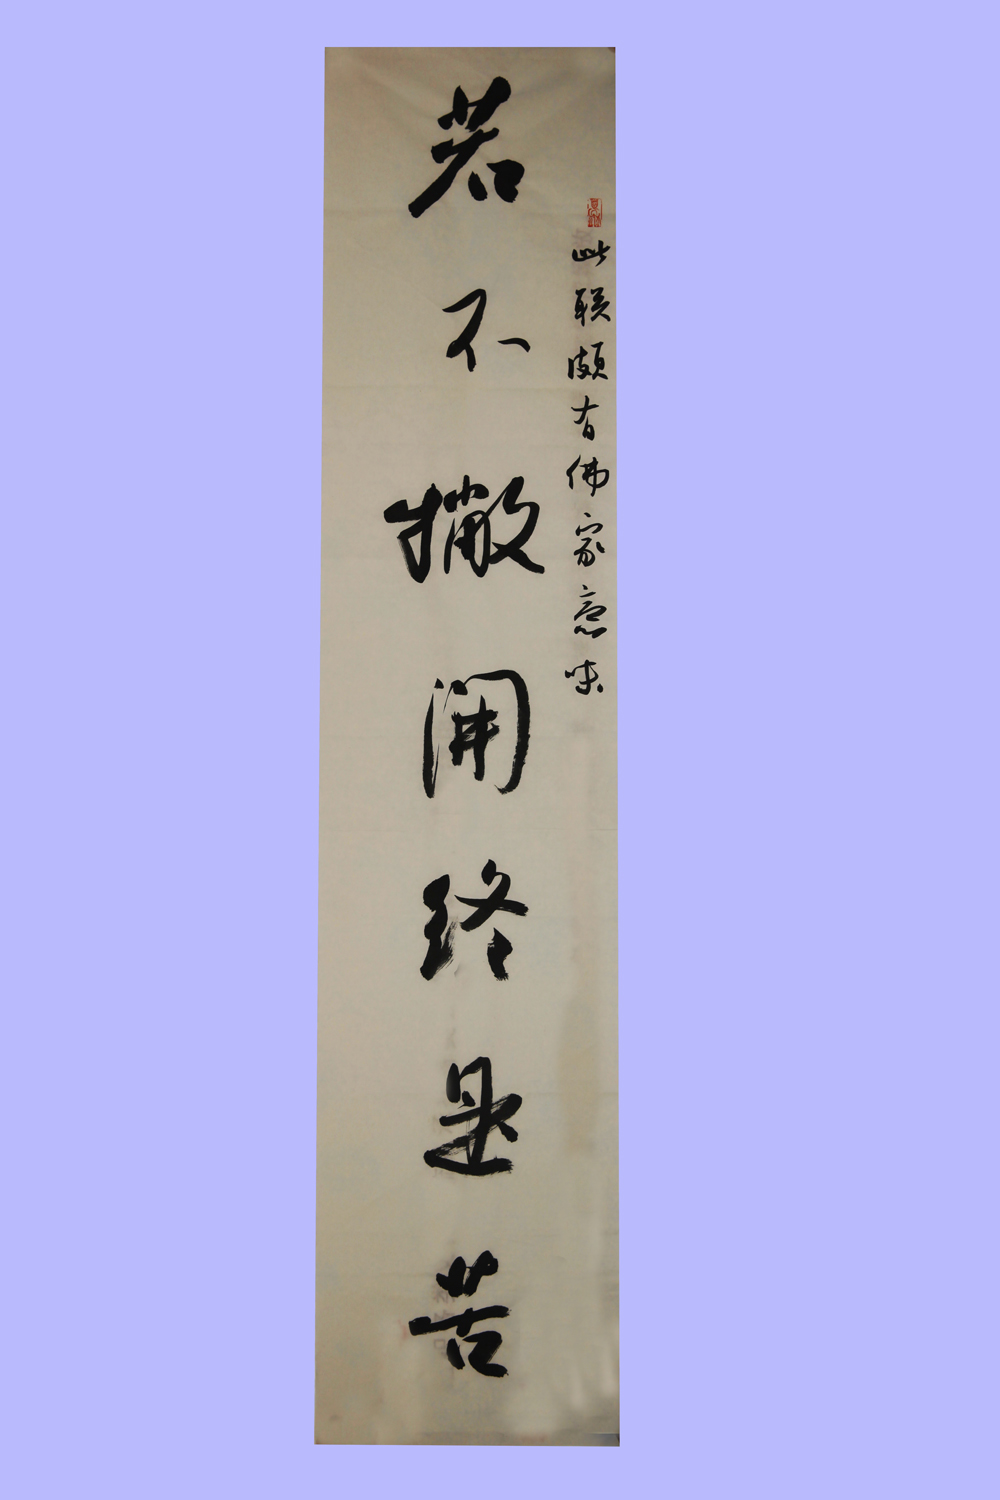 此联颇有佛家意味
若不撇开终是苦